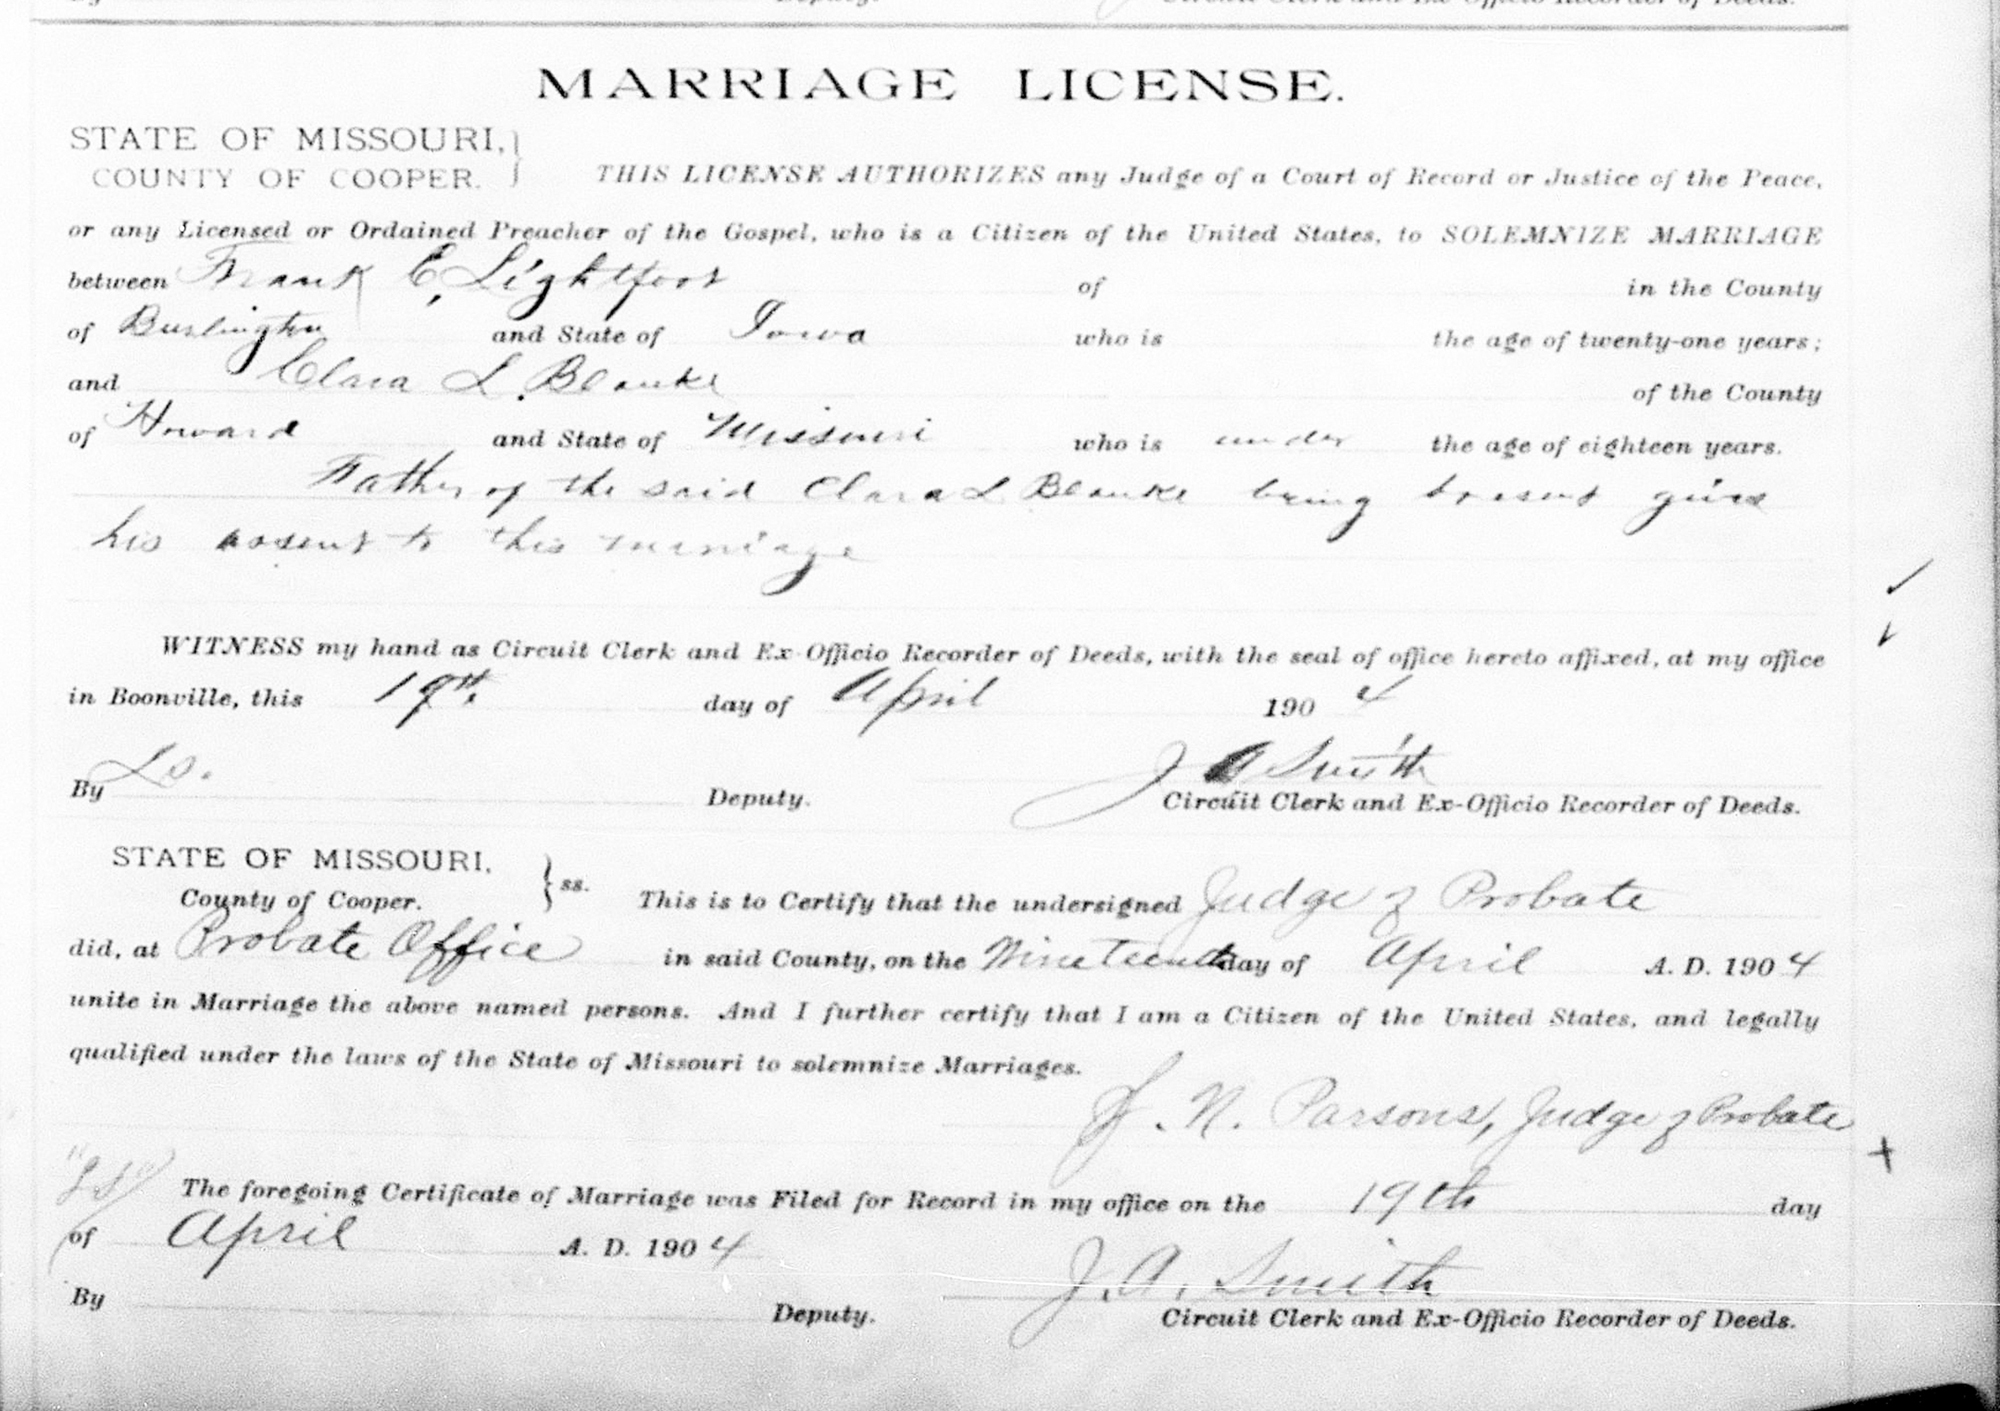 Deputy. Circuit Clerk and Ex-Officio Recorder of Deeds.
MARRIAGE LICENSE.
STATE OF MISSOURI,
COUNTY OF COOPER.
THIS LICENSE AUTHORIZES any Judge of a Court of Record or Justice of the Peace,
or any Licensed or Ordained Preacher of the Gospel, who is a Citizen of the United States, to SOLEMNIZE MARRIAGE
between Frank E. Lightfoot of in the County
of Burlington and State of Iowa who is the age of twenty-one years;
and Clara L. Blanke of the County
of Howard and State of Missouri who is under the age of eighteen years.
Father of the said Clara L Blanke being present gives
his assent to this marriage
WITNESS my hand as Circuit Clerk and Ex-Officio Recorder of Deeds, with the seal of office hereto affixed, at my office
in Boonville, this 19th day of April 190 4
J A Smith
By Deputy. Circuit Clerk and Ex-Officio Recorder of Deeds.
STATE OF MISSOURI,
County of Cooper. } ss. This is to Certify that the undersigned Judge of Probate
did, at Probate Office in said County, on the Nineteenth day of April A. D. 190 4
unite in Marriage the above named persons. And I further certify that I am a Citizen of the United States, and legally
qualified under the laws of the State of Missouri to solemnize Marriages.
N. Parsons, Judge of Probate
The foregoing Certificate of Marriage was Filed for Record in my office on the 19th day
of April A. D. 190 4
J. A. Smith
By Deputy. Circuit Clerk and Ex-Officio Recorder of Deeds.